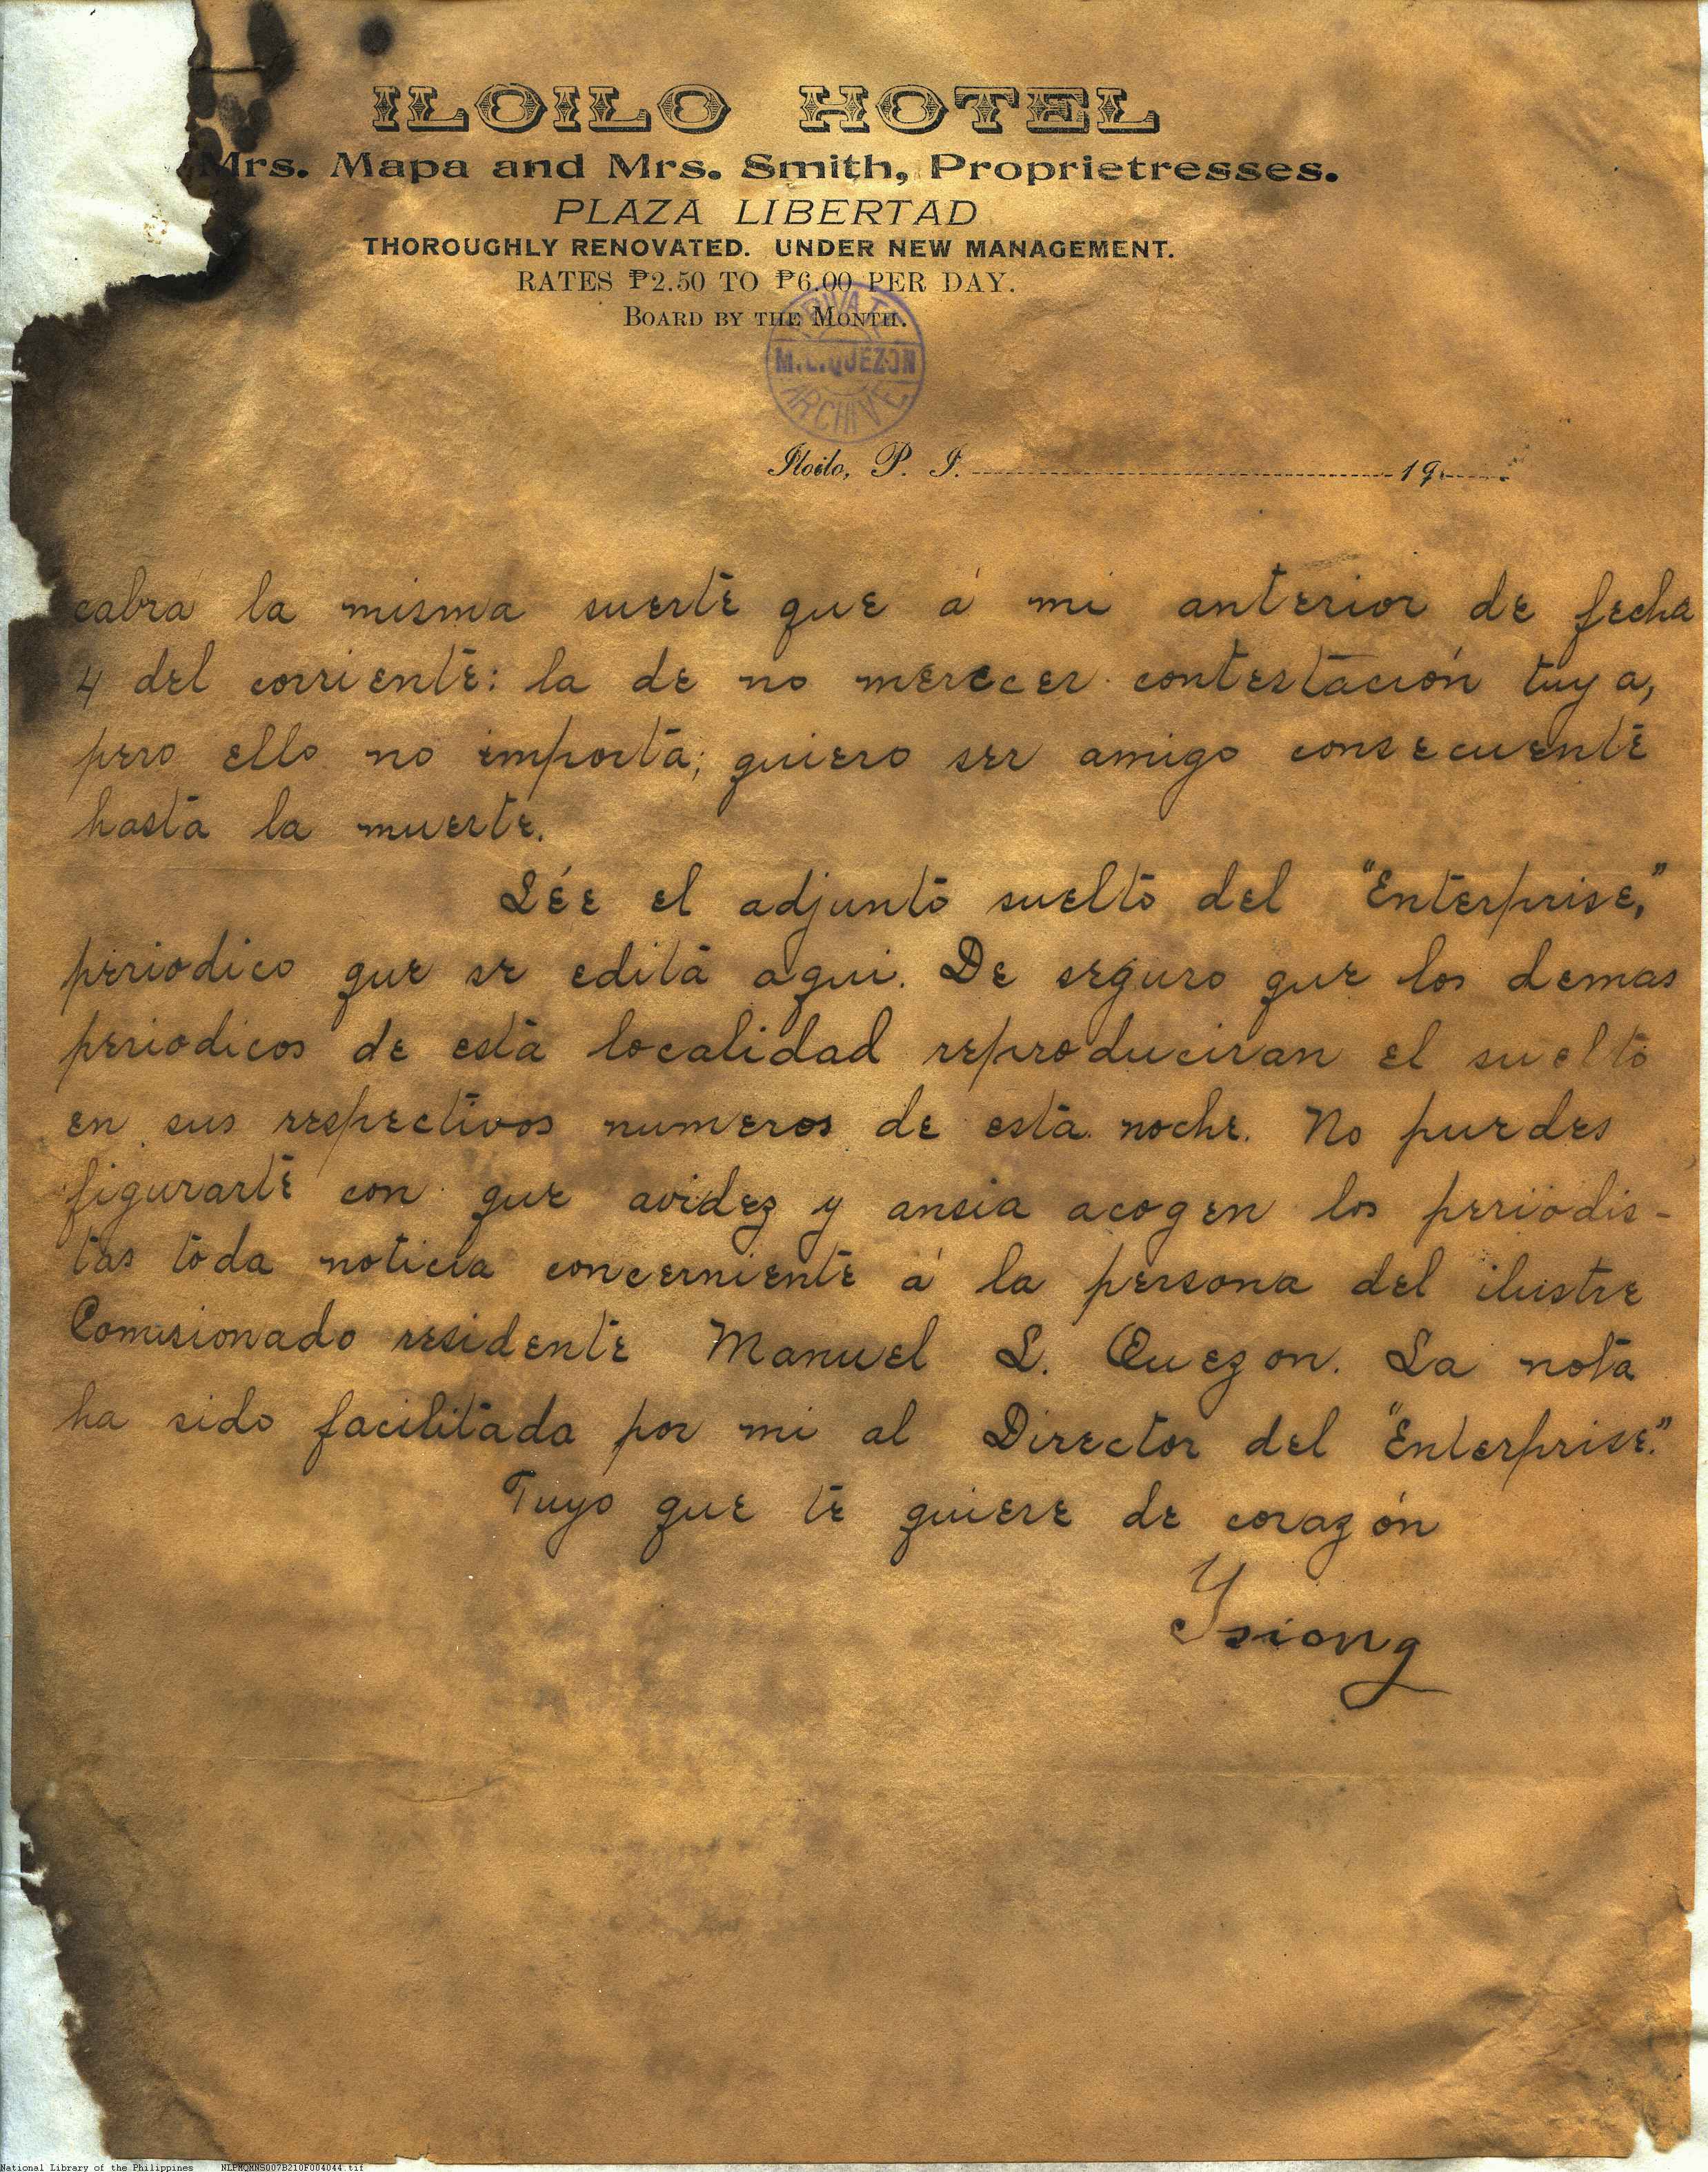 ILOILO HOTEL
Mrs. Mapa and Mrs. Smith, Proprietresses.
PLAZA LIBERTAD
THOROUGHLY RENOVATED. UNDER NEW MANAGEMENT.
RATES ₱2.50 TO ₱6.00 PER DAY.
BOARD BY THE MONTH.
PRIVATE
M.L.QUEZON
ARCHIVE
Iloilo, P. I. 19
cabrá la misma suerte que á mi anterior de fecha
4 del corriente: la de no merecer contestación tuya,
pero ello no importa; quiero ser amigo consecuente
hasta la muerte.
Lée el adjunto suelto del "Enterprise,"
periodico que se edita aqui. De seguro que los demas
periodicos de esta localidad reproduciran el suelto
en sus respectivos numeros de esta noche. No puedes
figurarte con que avidez y ansia acogen los periodis-
tas toda noticia concerniente á la persona del ilustre
Comisionado residente Manuel L. Quezon. La nota
ha sido facilitada por mi al Director del "Enterprise."
Tuyo que te quiere de corazón
Ysiong
National Library of the Philippines NLPMQMNS007B210F004044.tif